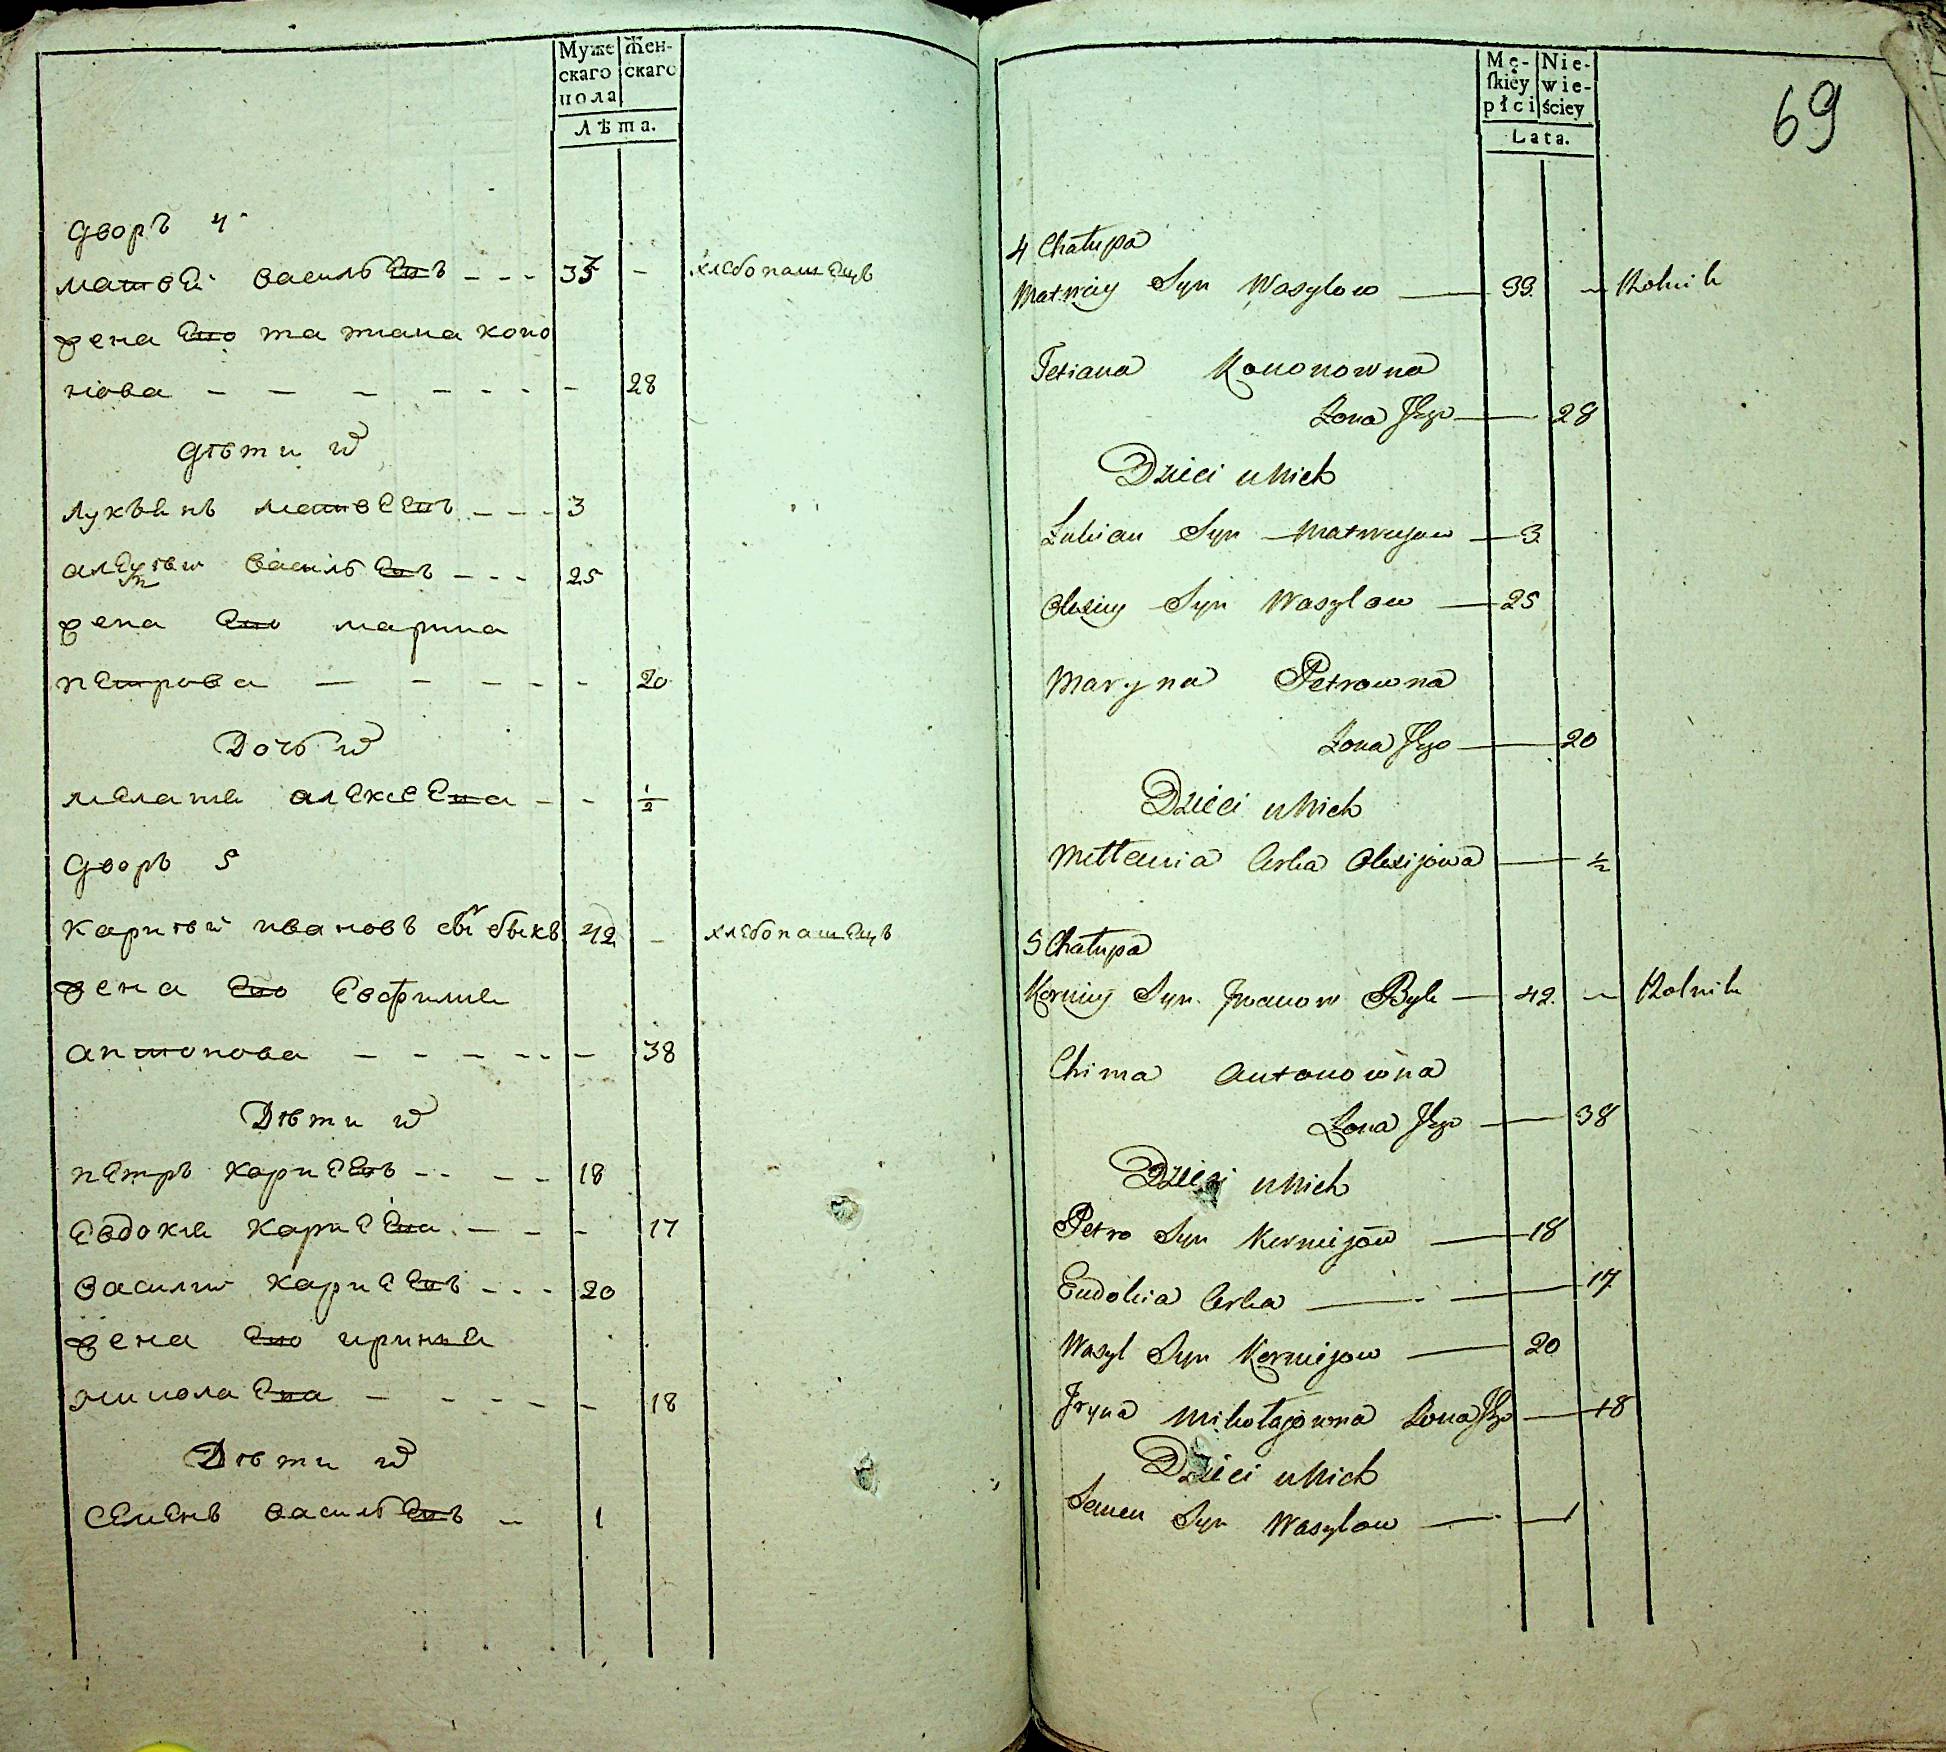 Муже
скаго
пола
Жен-
скаго
Лѣта.
дворъ 4
матвей васильевъ - - - 35 - хлебопашецъ
жена ево татиана коно
нова - - - - - - - 28
дѣти и҃
лукьянъ матвеевъ - - - 3
васильевъ - - - 25
жена ево марина
петрова - - - - - 20
Дочь
меланія алексеева - - 1/2
дворъ 5
карнѣй ивановъ сы҃ быкъ 42 - хлебопашецъ
жена ево Евфимия
антонова - - - - - - 38
Дѣти
петръ карнеевъ - - - - 18
Евдокия карнеева - - - 17
василии карнеевъ - - - 20
жена ево иринья
николаева - - - - - 18
Дѣти
Семенъ васильевъ - 1
Mę-
skiéy
płci
Nie-
wie-
ściey
Lata.
69
4 Chałupa
Matwiy Syn Wasylow — 33 — Rolnik
Tetiana Kononowna
Zona Jego — 28
Dzieci u Nich
Lukian Syn Matwiejow — 3
Olexiy Syn Wasylow — 25
Maryna Petrowna
Zona Jego — 20
Dzieci u Nich
Mełania Corka Olexijowa — 1/2
5 Chałupa
Korniy Syn Iwanow Byk — 42 — Rolnik
Chima Antonowna
Zona Jego — 38
Dzieci u Nich
Petro Syn Kornijow — 18
Eudokia Corka — 17
Wasyl Syn Kornijow — 20
Jryna Mikołajowna Zona Jego — 18
Dzieci u Nich
Semen Syn Wasylow — 1